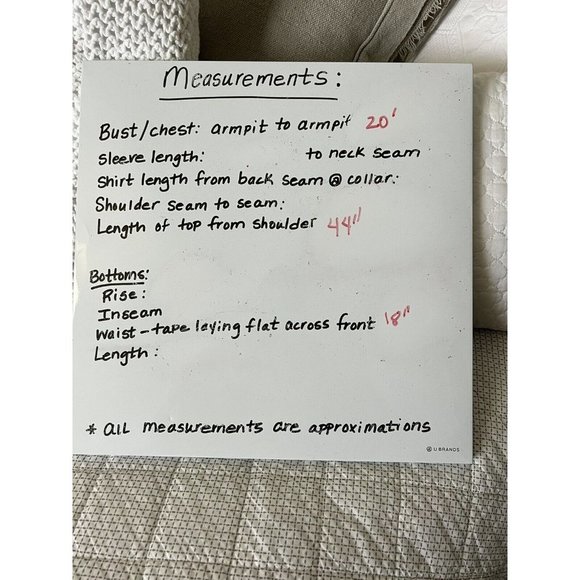 Measurements:
Bust/chest: armpit to armpit 20'
Sleeve length: to neck seam
Shirt length from back seam @ collar:
Shoulder seam to seam:
Length of top from shoulder 44"
Bottoms:
Rise:
Inseam
Waist - tape laying flat across front 18"
Length:
* all measurements are approximations
U BRANDS